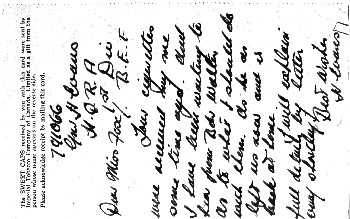 The SWEET CAPS received by you with this card were sent by
Imperial Tobacco Company of Canada, Limited as a gift from the
person whose name appears on the reverse side.
Please acknowledge receipt by mailing this card.
Gnr H Evans
H.Q.R.A
1st Div
B.E.F
Dear Miss Foxy.
Your cigarettes
were received by me
some time ago. and
I have been waiting to
hear from Bob Walter
as to what I should do
with them. as he and is
left us now and is
back at home. I will explain
full details by letter
may shortly. Best wishes
H Evans